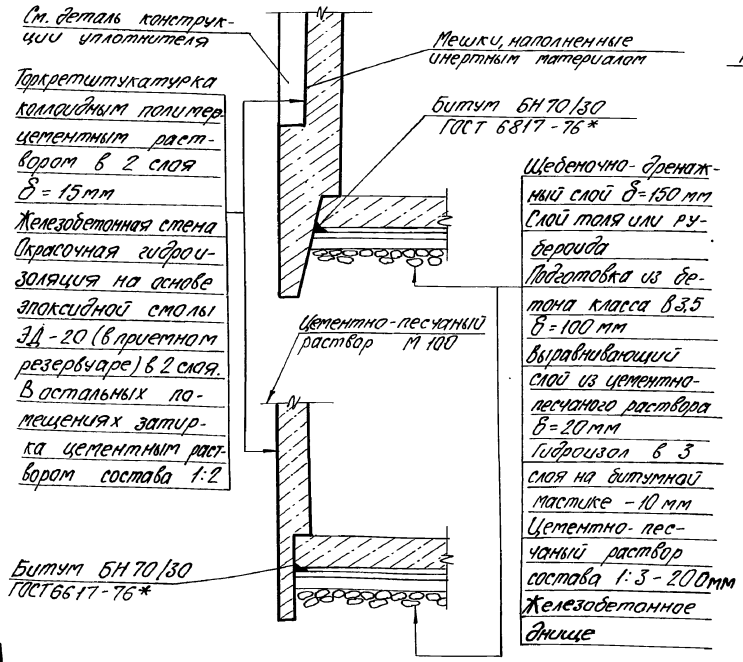 См. деталь конструк-
ции уплотнителя
Торкретштукатурка
коллоидным полимер-
цементным раст-
вором в 2 слоя
δ = 15мм
Железобетонная стена
Окрасочная гидрои-
золяция на основе
эпоксидной смолы
ЭД-20 (в приемном
резервуаре) в 2 слоя.
В остальных по-
мещениях затир-
ка цементным раст-
вором состава 1:2
Мешки, наполненные
инертным материалом
Битум БН 70/30
ГОСТ 6817-76*
Щебеночно-дренаж-
ный слой δ=150 мм
Слой толя или ру-
бероида
Подготовка из бе-
тона класса В3,5
δ=100 мм
Выравнивающий
слой из цементно-
песчаного раствора
δ=20 мм
Гидроизол в 3
слоя на битумной
мастике -10 мм
Цементно-пес-
чаный раствор
состава 1:3-200мм
Железобетонное
днище
Цементно-песчаный
раствор М 100
Битум БН 70/30
ГОСТ 6617-76*